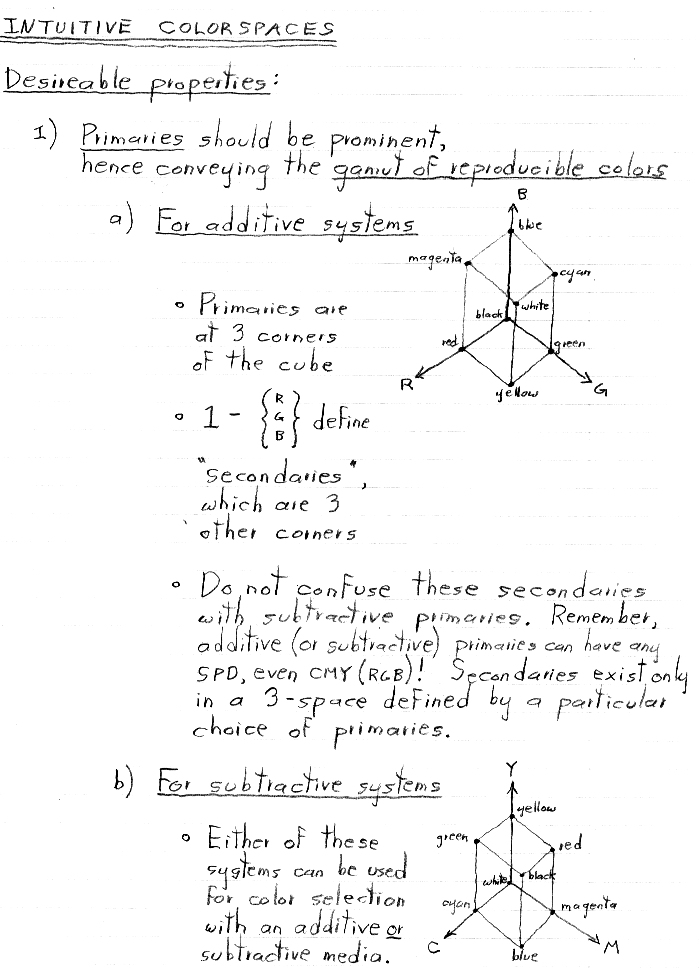 INTUITIVE COLORSPACES
Desireable properties:
1) Primaries should be prominent,
hence conveying the gamut of reproducible colors
a) For additive systems
B
blue
magenta
cyan
white
black
red
green
R
G
yellow
• Primaries are
at 3 corners
of the cube
• 1 - { R G B } define
"secondaries",
which are 3
other corners
• Do not confuse these secondaries
with subtractive primaries. Remember,
additive (or subtractive) primaries can have any
SPD, even CMY (RGB)! Secondaries exist only
in a 3-space defined by a particular
choice of primaries.
b) For subtractive systems
Y
yellow
green
red
white
black
cyan
magenta
C
M
blue
• Either of these
systems can be used
for color selection
with an additive or
subtractive media.